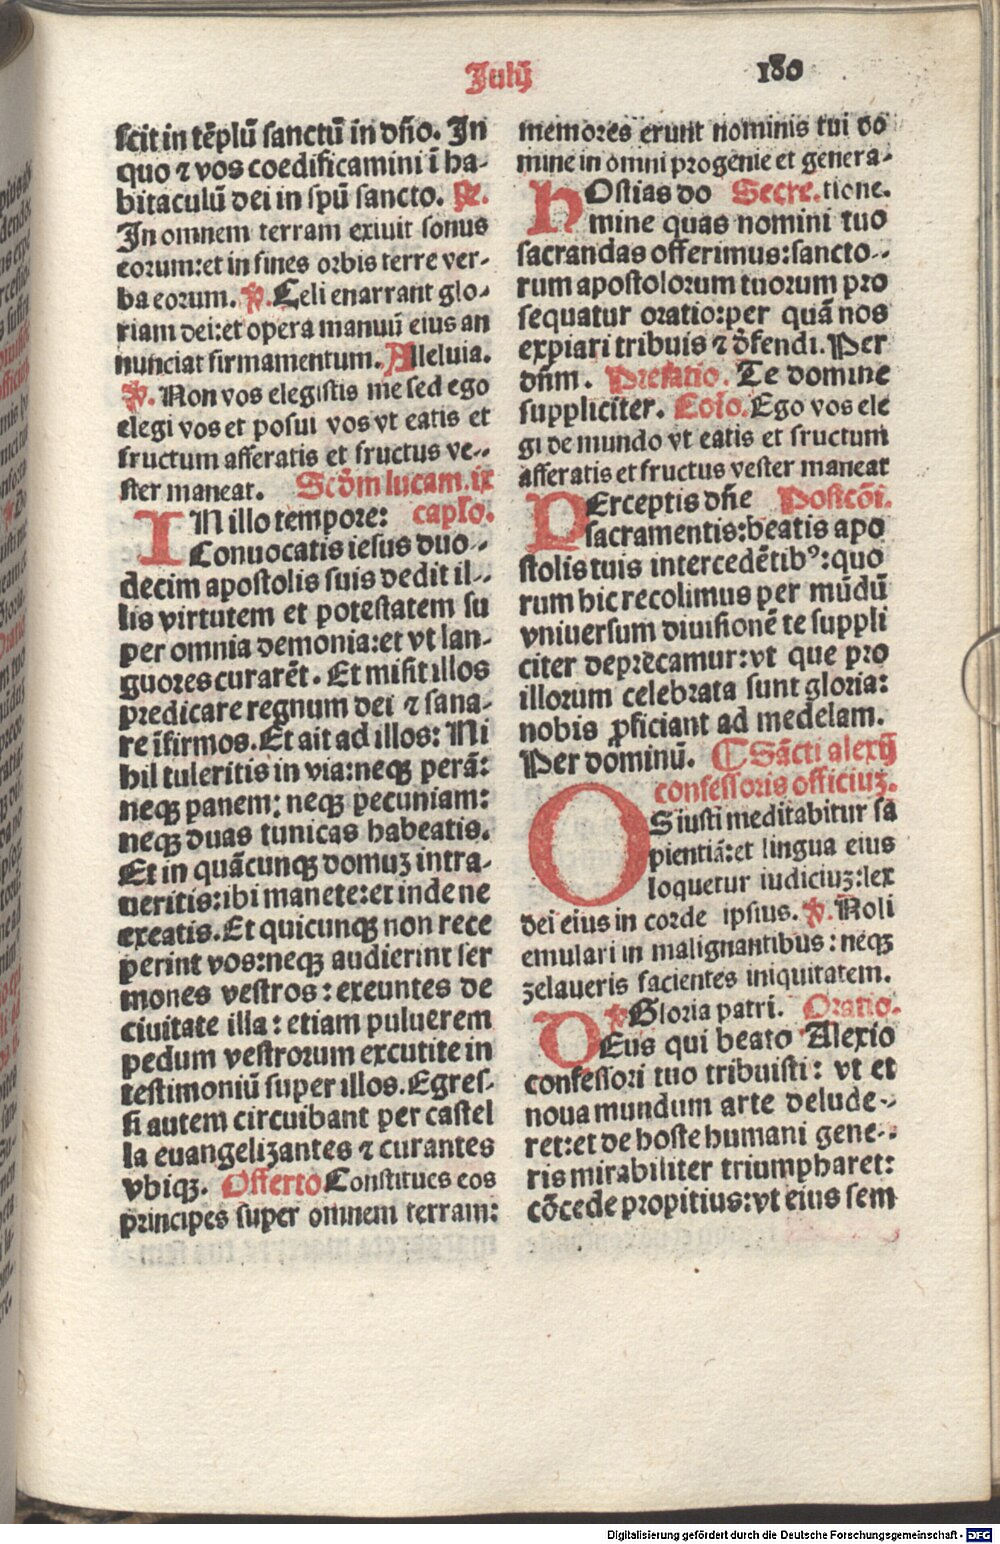 Julij
180
scit in tēplū sanctū in dño. In
quo ⁊ vos coedificamini ī ha-
bitaculū dei in spū sancto. ℟.
In omnem terram exiuit sonus
eorum:et in fines orbis terre ver-
ba eorum. ℣. Celi enarrant glo-
riam dei:et opera manuū eius an
nunciat firmamentum. Alleluia.
℣. Non vos elegistis me sed ego
elegi vos et posui vos vt eatis et
fructum afferatis et fructus ve-
ster maneat. Scōm lucam. ix
IN illo tempore: caplo.
Conuocatis iesus duo-
decim apostolis suis dedit il-
lis virtutem et potestatem su
per omnia demonia:et vt lan-
guores curarēt. Et misit illos
predicare regnum dei ⁊ sana-
re īfirmos. Et ait ad illos: Ni
hil tuleritis in via:neqꝫ perā:
neqꝫ panem: neqꝫ pecuniam:
neqꝫ duas tunicas habeatis.
Et in quācunqꝫ domuꝫ intra-
ueritis:ibi manete:et inde ne
exeatis. Et quicunqꝫ non rece
perint vos:neqꝫ audierint ser
mones vestros: exeuntes de
ciuitate illa: etiam puluerem
pedum vestrorum excutite in
testimoniū super illos. Egres-
si autem circuibant per castel
la euangelizantes ⁊ curantes
vbiqꝫ. Offerto Constitues eos
principes super omnem terram:
memores erunt nominis tui do
mine in omni progenie et genera-
HOstias do Secre. tione.
mine quas nomini tuo
sacrandas offerimus:sancto-
rum apostolorum tuorum pro
sequatur oratio:per quā nos
expiari tribuis ⁊ d̄fendi. Per
dñm. Prefatio. Te domine
suppliciter. Cōio. Ego vos ele
gi de mundo vt eatis et fructum
afferatis et fructus vester maneat
PErceptis dñe Postcōi.
sacramentis:beatis apo
stolis tuis intercedētibꝰ:quo
rum hic recolimus per mūdū
vniuersum diuisionē te suppli
citer deprecamur:vt que pro
illorum celebrata sunt gloria:
nobis ꝓficiant ad medelam.
Per dominū. ¶ Sācti alexij
confessoris officiuꝫ.
OS iusti meditabitur sa
pientiā:et lingua eius
loquetur iudiciuꝫ:lex
dei eius in corde ipsius. ℣. Noli
emulari in malignantibus: neqꝫ
zelaueris facientes iniquitatem.
℣ Gloria patri. Oratio.
DEus qui beato Alexio
confessori tuo tribuisti: vt et
noua mundum arte delude-
ret:et de hoste humani gene-
ris mirabiliter triumpharet:
cōcede propitius:vt eius sem
Digitalisierung gefördert durch die Deutsche Forschungsgemeinschaft - DFG